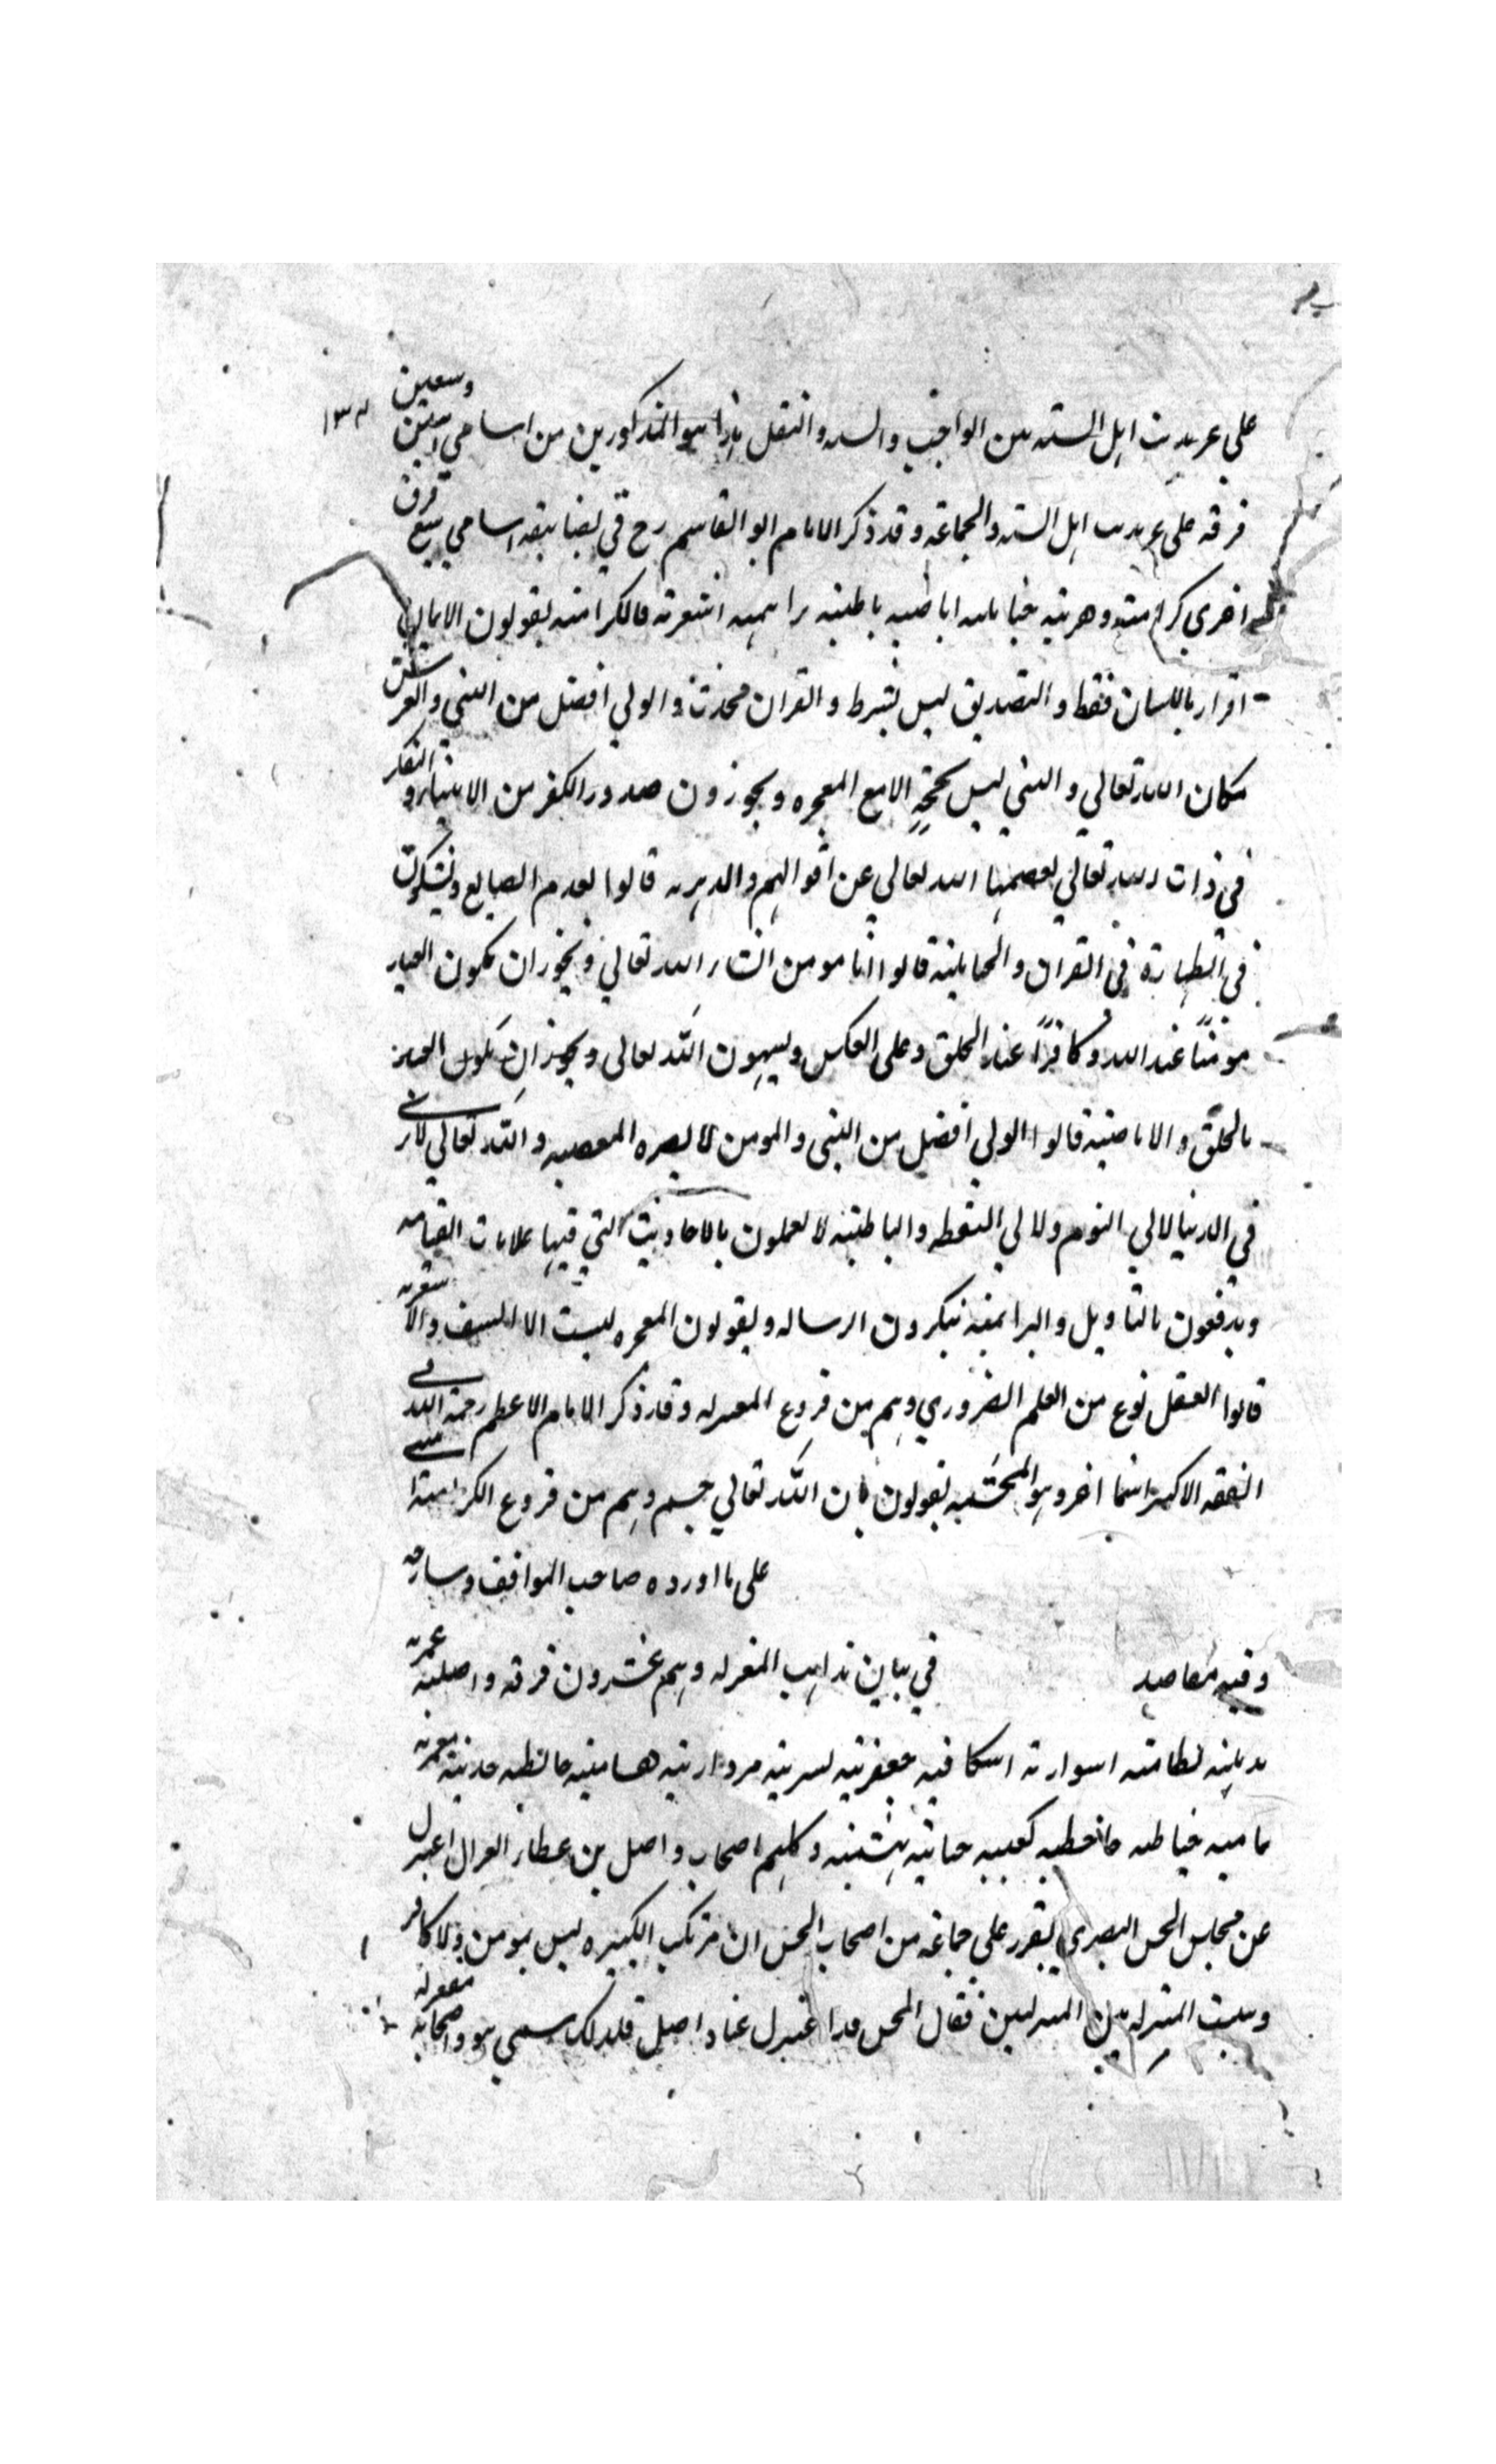 على غير مذهب اهل السنه من الواجب والسنه والنفل هذا هو المذكورين من اسامي اثنين وسبعين
فرقه على غير مذهب اهل السنه والجماعه وقد ذكر الامام ابو القاسم رح في تصانيفه اسامي سبع فرق
اخرى كرامته وهريته اباضيه باطنيه براهميه اشعرته فالكرامته يقولون الايمان
اقرار باللسان فقط والتصديق ليس بشرط والقران محدث والولي افضل من النبي والعرش
مكان الله تعالي والنبي ليس بحجة الا مع المعجزه ويجوزون صدور الكفر من الانبياء والتفكر
في ذات الله تعالي يعصمنا الله تعالى عن اقوالهم والدهريه قالوا بعدم الصانع ويشكون
في الطهارة في القران قالوا انا مومن انشاء الله تعالي ويجوز ان يكون العبد
مومنًا عند الله وكافرًا عند الخلق وعلى العكس ويسبهون الله تعالى ويجوز ان يكون العبد
بالخلق والاباضيه قالوا الولي افضل من النبي والمومن لا يضره المعصيه والله تعالي لا يرى
في الدنيا لا في النوم ولا في اليقظه والباطنيه لا يعملون بالاحاديث التي فيها علامات القيامه
ويدفعون بالتاويل والبراهميه ينكرون الرساله ويقولون المعجزه ليست الا السيف والاشعريه
قالوا العقل نوع من العلم الضروري وهم من فروع المعتزله وقد ذكر الامام الاعظم رحمة الله في
الفقه الاكبر اسما اخر وهو المجسميه يقولون بان الله تعالي جسم وهم من فروع الكراميته
على ما اورده صاحب المواقف وشارحه
وفيه مقاصد في بيان مذاهب المعتزله وهم عشرون فرقه واصليه عمريه
هذيليه نظاميه اسواريه اسكافيه جعفريه بشريه مردارية هشاميه حائطيه حدثيه معمريه
ثماميه خياطيه جاحظيه كعبيه جبائيه بهشميه وكلهم اصحاب واصل بن عطاء الغزال اعتزل
عن مجلس الحسن البصري يقرر علي جماعه من اصحاب الحسن ان مرتكب الكبيره ليس بمومن ولا كافر
ويثبت المنزله بين المنزلين فقال الحسن قد اعتزل عنا واصل فلذلك سمي هو واصحابه معتزله